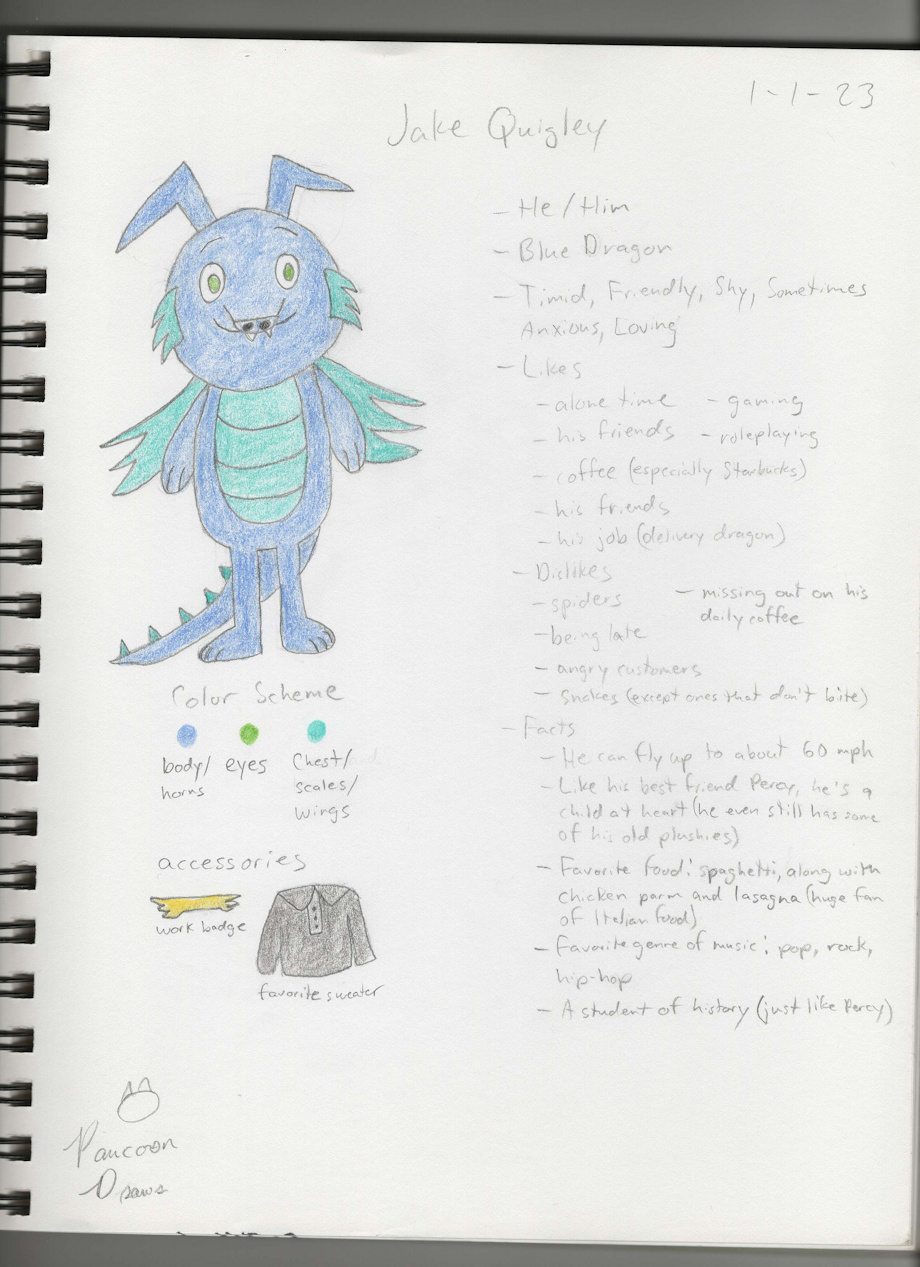 1-1-23
Jake Quigley
- He/Him
- Blue Dragon
- Timid, Friendly, Shy, Sometimes
Anxious, Loving
- Likes
- alone time - gaming
- his friends - roleplaying
- coffee (especially Starbucks)
- his friends
- his job (delivery dragon)
- Dislikes
- spiders - missing out on his
daily coffee
- being late
- angry customers
- snakes (except ones that don't bite)
- Facts
- He can fly up to about 60 mph
- Like his best friend Percy, he's a
child at heart (he even still has some
of his old plushies)
- Favorite food: spaghetti, along with
chicken parm and lasagna (huge fan
of Italian food)
- Favorite genre of music: pop, rock,
hip-hop
- A student of history (just like Percy)
Color Scheme
body/ eyes Chest/
horns scales/
wings
accessories
work badge
favorite sweater
Paucoon
Draws